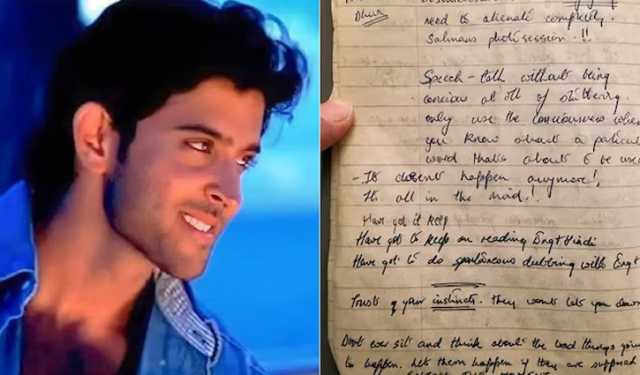 Dhruv
need to alienate completly.
Salmans photosession .!!
Speech - talk without being
concious at all of stuttering
only use the conciousness when
you know about a particul
word thats about to be use
- It doesnt happen anymore!,
Its all in the mind.!.
Have got it keep
Have got to keep on reading Eng & Hindi
Have got to do spontaneous dubbing with Eng &
Trust your instincts. They wont let you down
Dont ever sit and think about the bad things goin
to happen. Let them happen if they are suppos